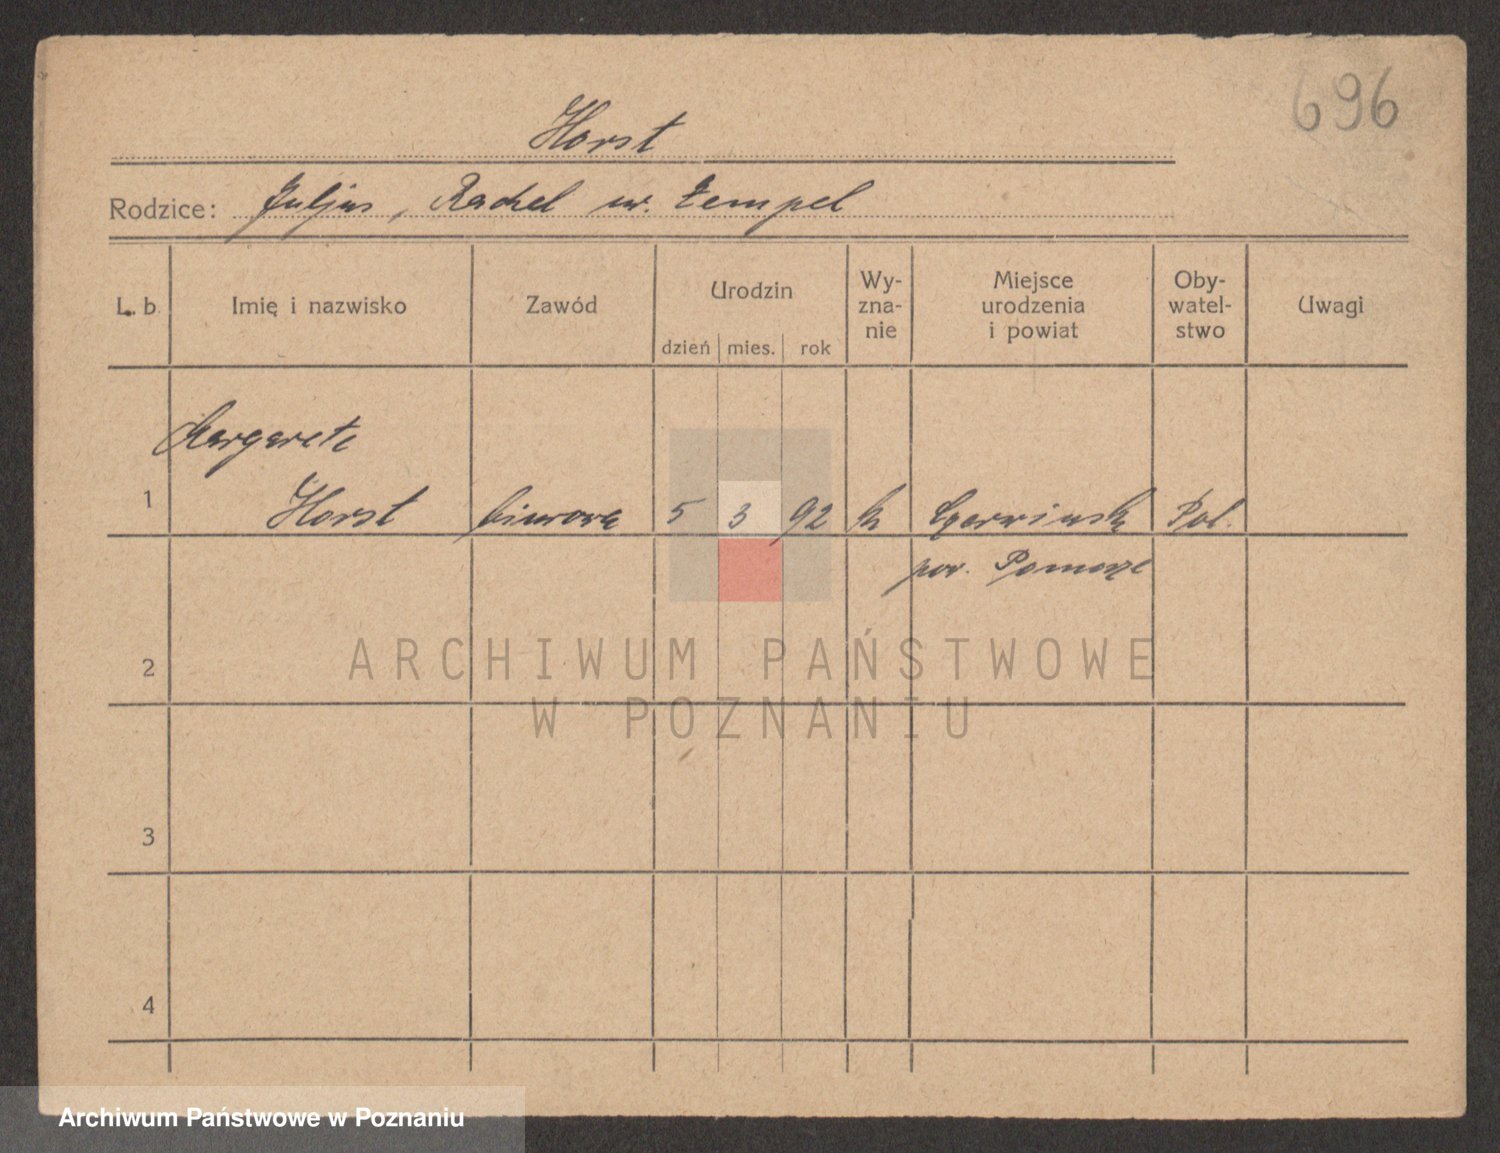 696
Horst
Rodzice: Juljus, Rachel ur. Tempel
L. b. Imię i nazwisko Zawód Urodzin dzień mies. rok Wy-zna-nie Miejsce urodzenia i powiat Oby-watel-stwo Uwagi
Margarete
1 Horst biurowa 5 3 92 Pol.
pow. Pomorze
2
ARCHIWUM PAŃSTWOWE
W POZNANIU
3
4
Archiwum Państwowe w Poznaniu